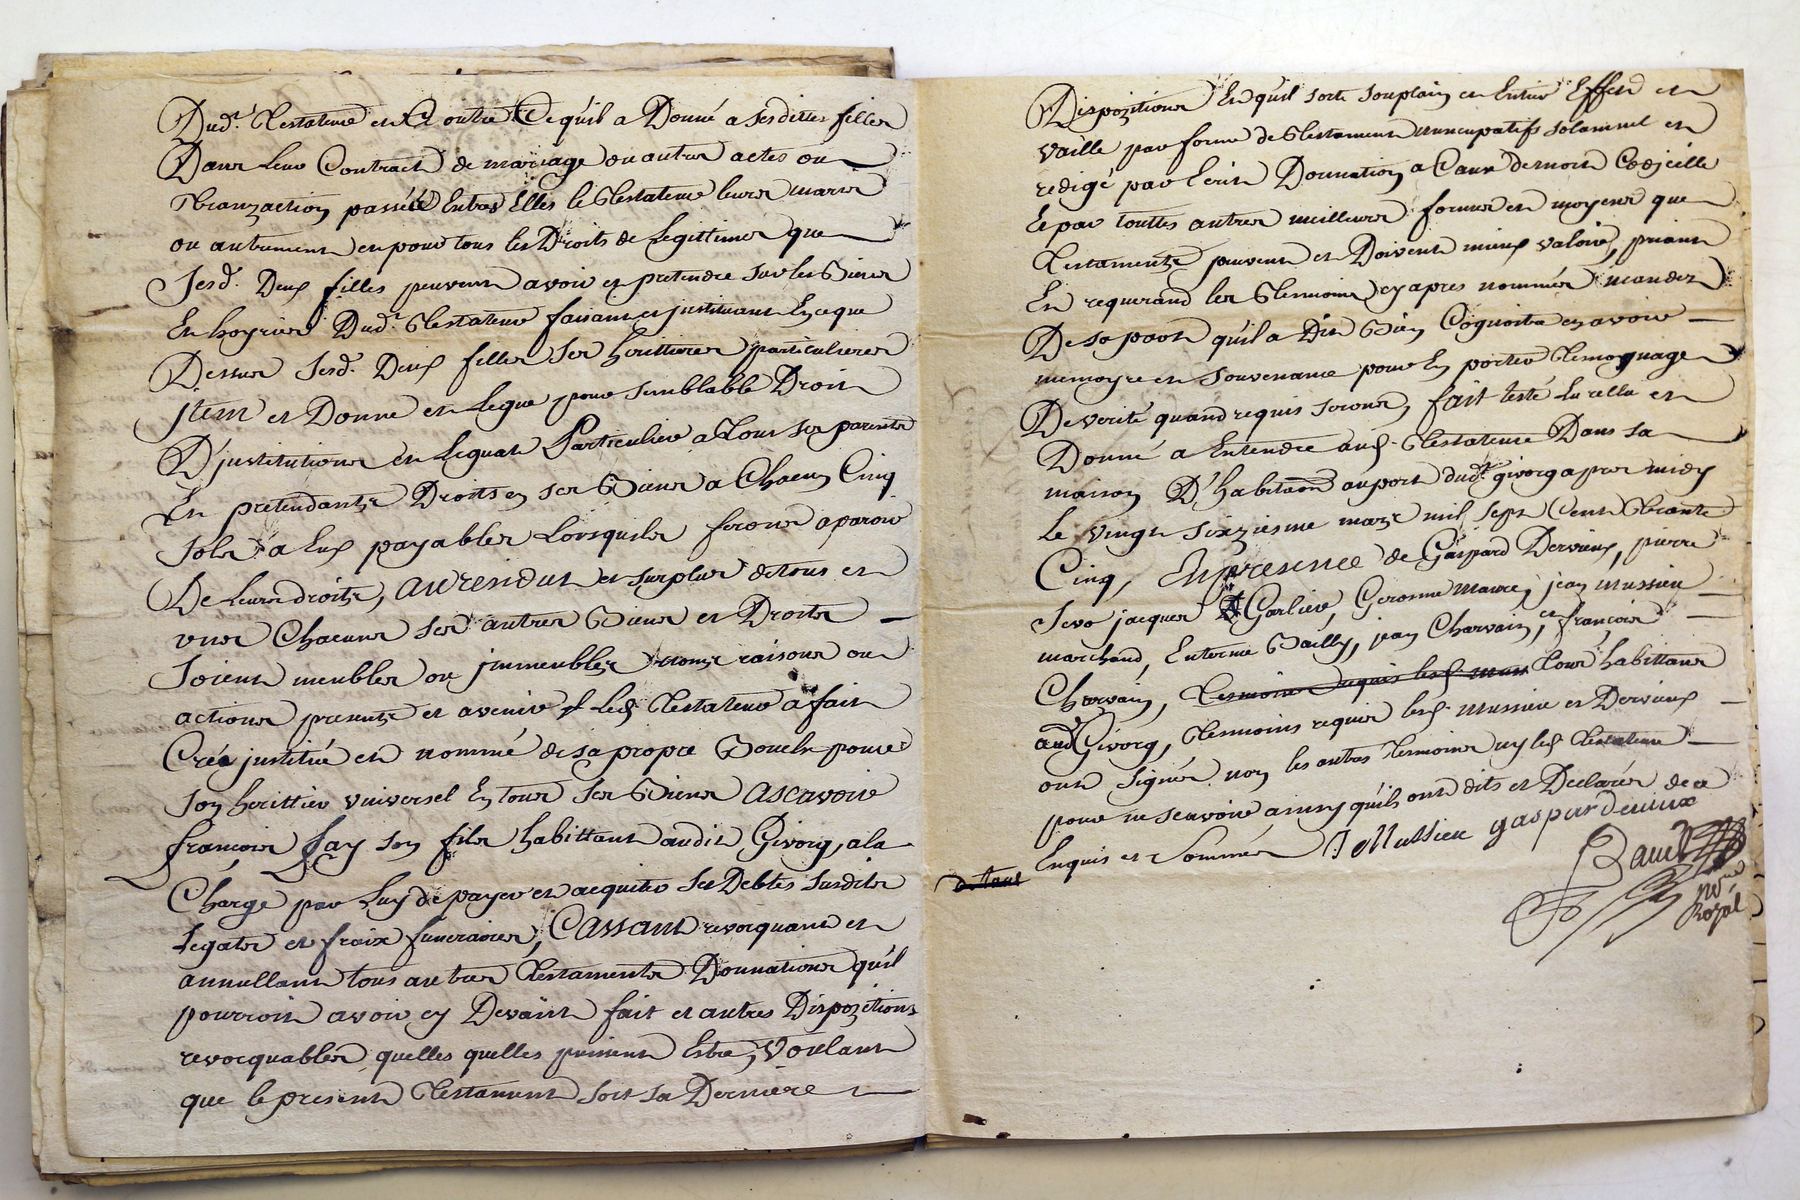 Dudt. Testateur et Et outre Ce qu'il a Donné a sesdittes filles
Dans leur Contract de mariage ou autres actes ou
Tranzaction passéé Entres Elles le Testateur leurs maris
ou autrement en pour tous les Droits de Legittimes que
Sesd. Deux filles peuvent avoir et pretendre sur les Biens
Et hoyries Dudt. Testateur faisant et justituant En ce que
Dessus Sesd. Deux filles Ses heritieres particulieres
jtem et Donne et Legue pour semblable Droit
D'justitution et Legat Particulier a Tous ses parents
Et pretendants Droits en ses Biens a Chacun Cinq
Sols a Eux payables Lorsquils feront aparoir
De leurs droits, au residut et surplus de tous et
vns Chacuns ses autres Biens et Droits
Soient meubles ou jmmeubles noms raisons ou
actions presents et avenir led Testateur a fait
Créé justitué et nommé de sa propre Bouche pour
son herittier vniversel En tous ses Biens ascavoir
françois fay son fils habittant audit Givorg, a la
Charge par Luy de payer et acquiter ses Debtes susdits
Legats et fraix funeraires, Cassant revocquant et
annullant tous autres Testaments Donnations qu'il
pourroit avoir cy Devant fait et autres Dispozitions
revocquables quelles quelles puissent Estre, Voulant
que le present Testament soit sa Derniere
Dispozition Et qu'il sorte son plain et Entier Effect et
vaille par forme de Testament nuncupatifs solamnel et
redigé par Ecrit Donnation a Cause de mort Codjcille
Et par touttes autres meilleures formes et moyens que
Testaments peuvent et Doivent mieux valoir, priant
Et requerand les Temoins cy apres nommés mandez
De sa part qu'il a Dit Bien Cognoitre en avoir
memoyre et Souvenance pour En porter Temognage
De verité quand requis seront, fait testé Lu rellu et
Donné a Entendre aud. Testateur Dans sa
maison D'habitaon au port dudt. givorg apres midy
Le vingt sixziesme mars mil sept Cent Trante
Cinq, En presence de Gaspard Dervieux, pierre
Seve jacques Garlieu, Gerosme maure, jean mussieu
marchand, Entoenne Bailly, jean Charvain, et françois
Charvain, Tesmoins requis lesd. Tous habittans
aud Givorg, Tesmoins requis lesd. mussieu et Dervieux
ont signés non les autres Temoins ny led Testateur
pour ne scavoir ainsy qu'ils ont dits et Declarés de ce
Enquis et Sommés J Mussieu gaspar deruieux
nore
Royal